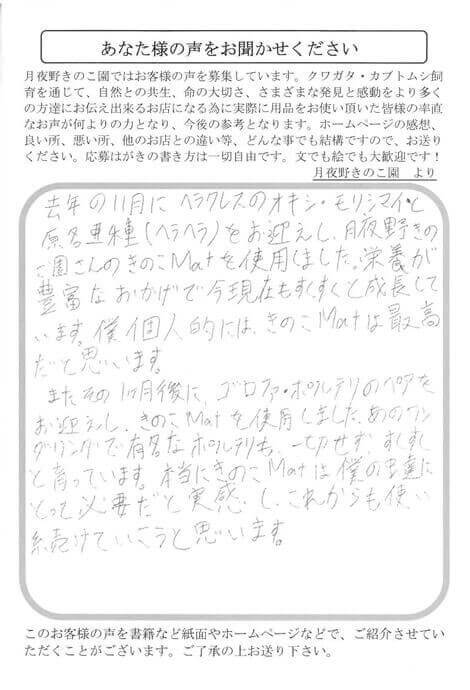 あなた様の声をお聞かせください
月夜野きのこ園ではお客様の声を募集しています。クワガタ・カブトムシ飼
育を通じて、自然との共生、命の大切さ、さまざまな発見と感動をより多く
の方達にお伝え出来るお店になる為に実際に用品をお使い頂いた皆様の率直
なお声が何よりの力となり、今後の参考となります。ホームページの感想、
良い所、悪い所、他のお店との違い等、どんな事でも結構ですので、お送り
ください。応募はがきの書き方は一切自由です。文でも絵でも大歓迎です！
月夜野きのこ園　より
去年の11月にヘラクレスのオキシ・モリシマイと
原名亜種(ヘラヘラ)をお迎えし、月夜野きの
こ園さんのきのこMatを使用しました。栄養が
豊富なおかげで今現在もすくすくと成長して
います。僕個人的には、きのこMatは最高
だと思います。
またその1ヶ月後に、ゴロファ・ポルテリのペアを
お迎えし、きのこMatを使用しました。あのワン
ダリングで有名なポルテリも、一切せず、すくすく
と育っています。本当にきのこMatは僕の虫達に
とって必要だと実感し、これからも使い
続けていこうと思います。
このお客様の声を書籍など紙面やホームページなどで、ご紹介させてい
ただくことがございます。ご了承の上お送り下さい。